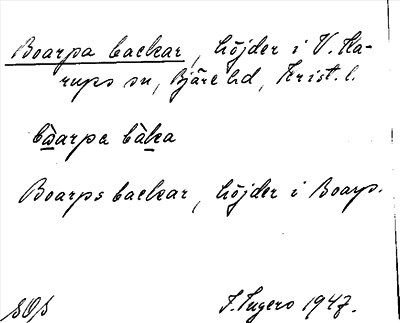 Boarpa backar, höjder i V. Ka-
rups sn, Bjäre hd, Krist. l.
bàarpa bàka
Boarps backar, höjder i Boarp.
1947.